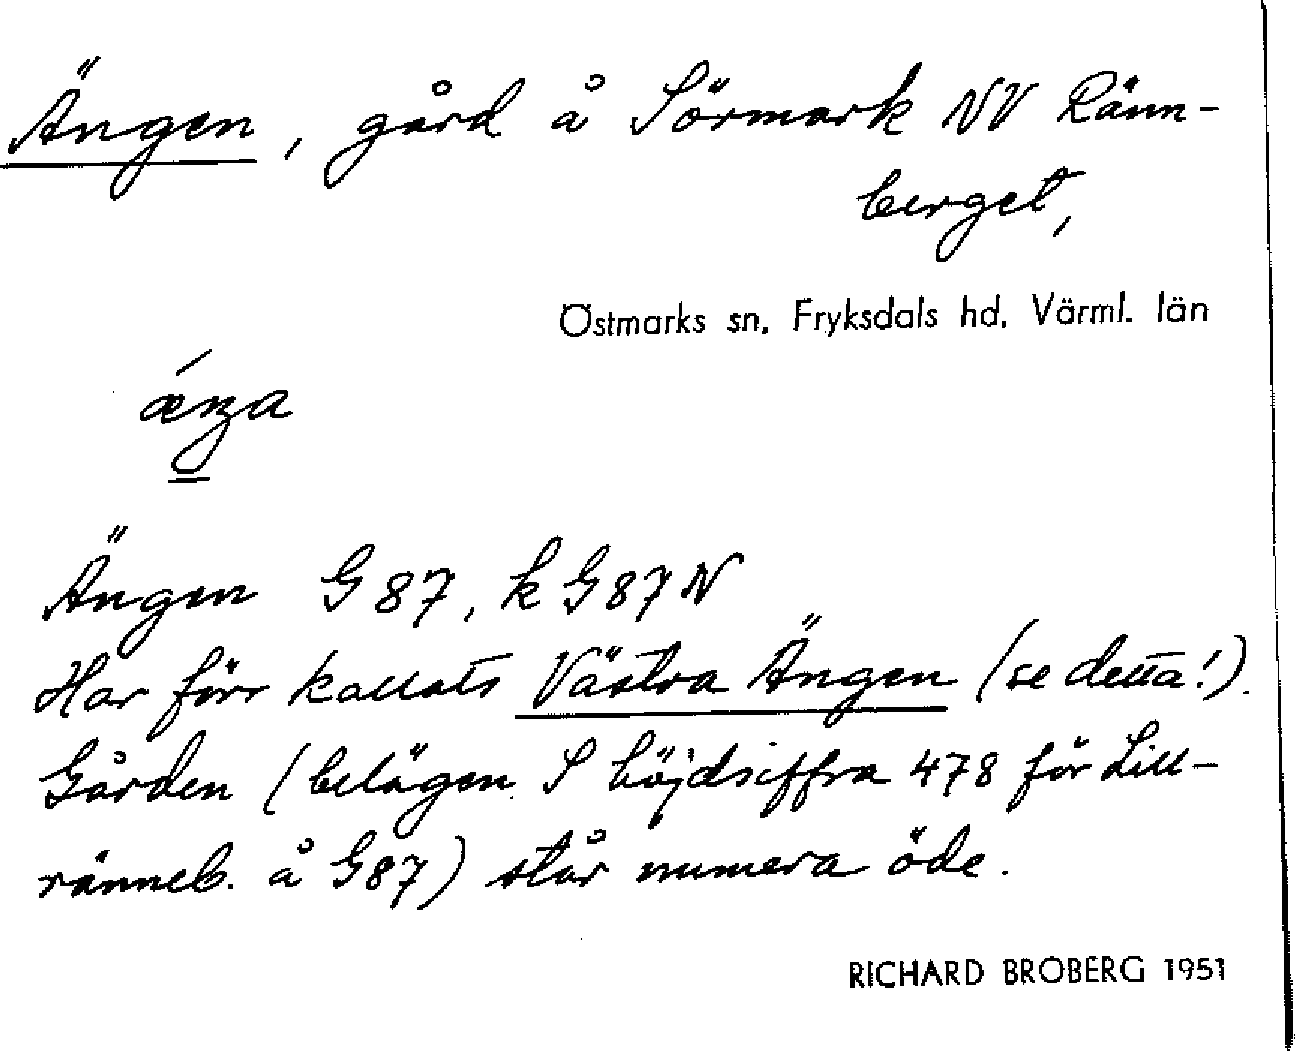 Ängen, gård å Sörmark NV Ränn-
berget,
Östmarks sn, Fryksdals hd, Värml. län
Ängen G 87, k G 87 N
Har förr kallats Västra Ängen (se detta!).
Gården (belägen S höjdsiffra 478 för Lill-
ränneb. å G87) står numera öde.
RICHARD BROBERG 1951